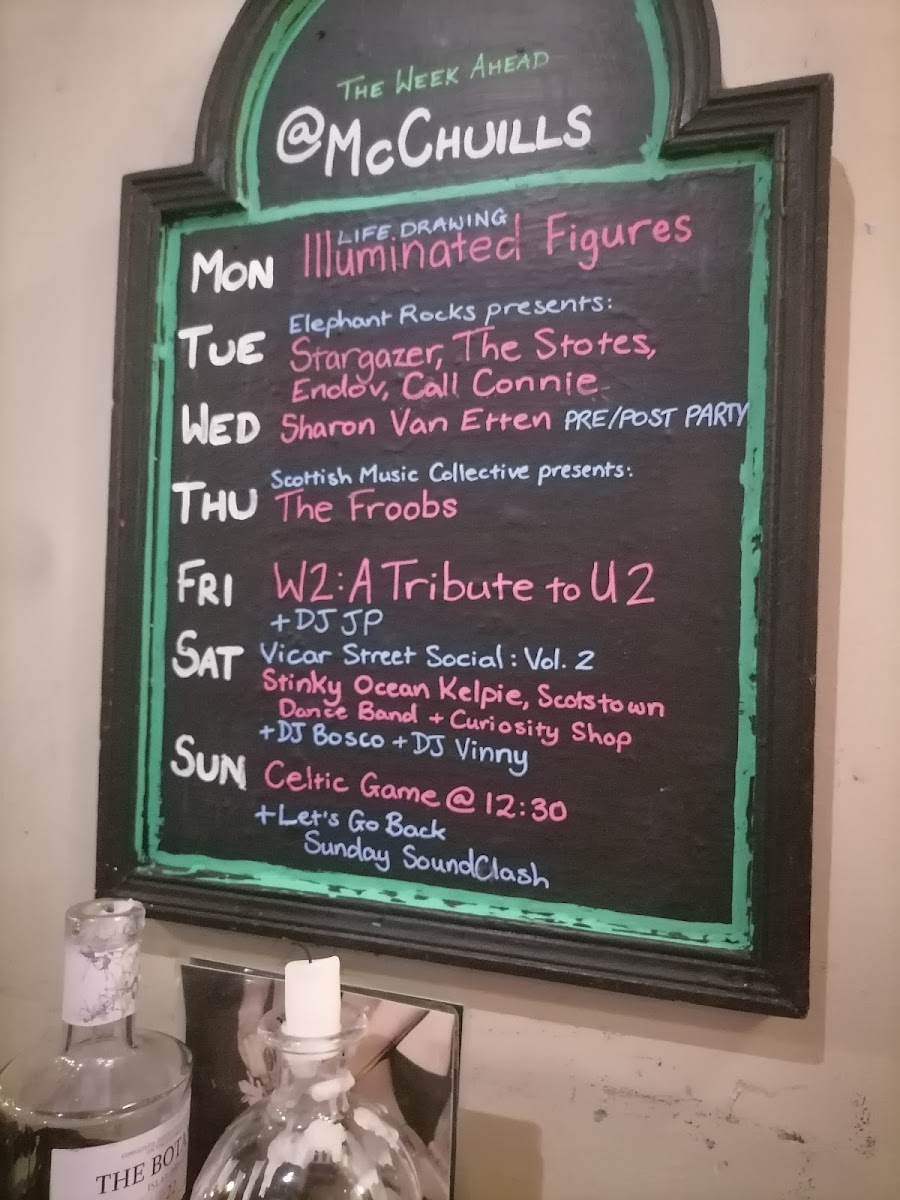 THE WEEK AHEAD
@McCHUILLS
MON
LIFE DRAWING
Illuminated Figures
TUE
Elephant Rocks presents:
Stargazer, The Stotes,
Endöv, Call Connie
WED Sharon Van Etten PRE/POST PARTY
THU
Scottish Music Collective presents:
The Froobs
FRI W2: A Tribute to U2
+ DJ JP
SAT Vicar Street Social: Vol. 2
Stinky Ocean Kelpie, Scotstown
Dance Band + Curiosity Shop
+ DJ Bosco + DJ Vinny
SUN Celtic Game @ 12:30
+ Let's Go Back
Sunday SoundClash
THE BOTA